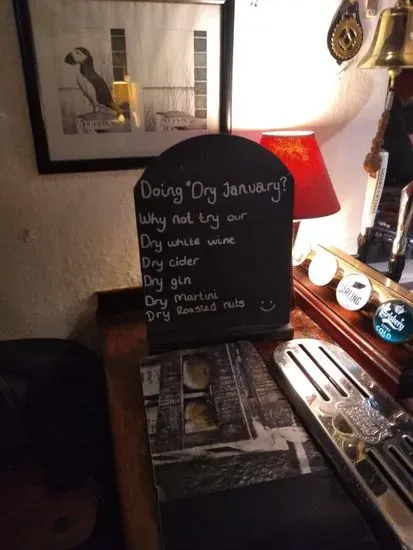 Doing "Dry January?
Why not try our
Dry white wine
Dry cider
Dry gin
Dry Martini
Dry Roasted nuts
Carlsberg
COLD